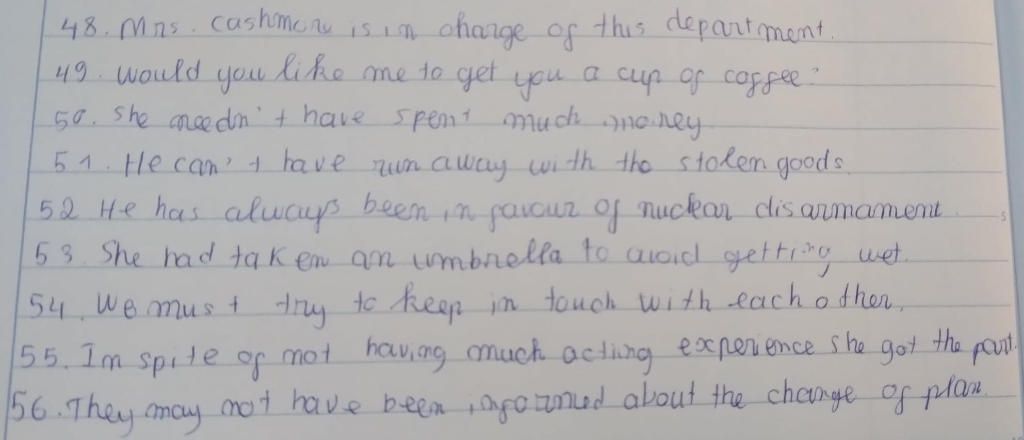 48. Mrs. Cashmore is in charge of this department.
49. would you like me to get you a cup of coffee?
50. She needn't have spent much money
51. He can't have run away with the stolen goods.
52 He has always been in favour of nuclear disarmament.
53. She had taken an umbrella to avoid getting wet.
54. We must try to keep in touch with each other.
55. In spite of not having much acting experience she got the part.
56. They may not have been informed about the change of plan.